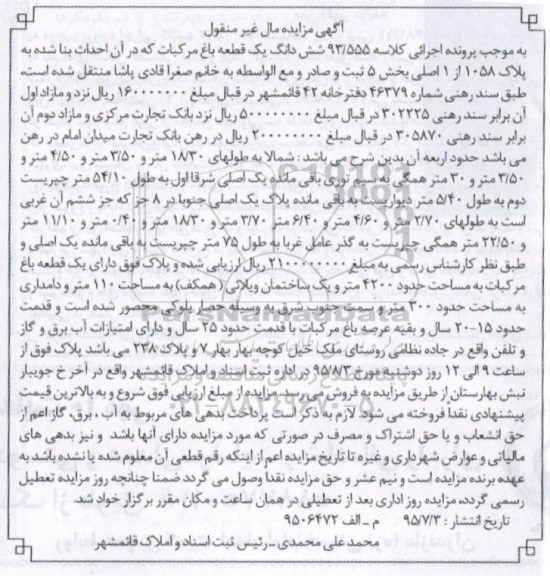 آگهی مزایده مال غیر منقول
به موجب پرونده اجرائی کلاسه ۹۳/۵۵۵ شش دانگ یک قطعه باغ مرکبات که در آن احداث بنا شده به
پلاک ۱۰۵۸ از ۱ اصلی بخش ۵ ثبت و صادر و مع الواسطه به خانم صغرا قادی پاشا منتقل شده است،
طبق سند رهنی شماره ۴۶۳۷۹ دفترخانه ۴۲ قائمشهر در قبال مبلغ ۱۶۰۰۰۰۰۰۰ ریال نزد و مازاد اول
آن برابر سند رهنی ۳۰۲۲۲۵ در قبال مبلغ ۵۰۰۰۰۰۰۰۰ ریال نزد بانک تجارت مرکزی و مازاد دوم آن
برابر سند رهنی ۳۰۵۸۷۰ در قبال مبلغ ۲۰۰۰۰۰۰۰۰ ریال در رهن بانک تجارت میدان امام در رهن
می باشد حدود اربعه آن بدین شرح می باشد : شمالا به طولهای ۱۸/۳۰ متر و ۳/۵۰ متر و ۴/۵۰ متر و
۳/۵۰ متر و ۳۰ متر همگی به سیم توری باقی مانده یک اصلی شرقا اول به طول ۵۴/۱۰ متر چپریست
دوم به طول ۵/۴۰ متر دیواریست به باقی مانده پلاک یک اصلی جنوبا در ۸ جز که جز ششم آن غربی
است به طولهای ۲/۷۰ متر و ۴/۶۰ متر و ۶/۴۰ متر ۳/۷۰ متر و ۱۸/۳۰ متر و ۰/۴۰ متر و ۱۱/۱۰ متر
و ۲۲/۵۰ متر همگی چپریست به گذر عامل غربا به طول ۷۵ متر چپریست به باقی مانده یک اصلی و
طبق نظر کارشناس رسمی به مبلغ ۲۱۰۰۰۰۰۰۰۰۰ ریال ارزیابی شده و پلاک فوق دارای یک قطعه باغ
مرکبات به مساحت حدود ۴۲۰۰ متر و یک ساختمان ویلائی (همکف) به مساحت ۱۱۰ متر و دامداری
به مساحت حدود ۳۰۰ متر و سمت جنوب شرق به وسیله حصار بلوکی محصور شده است و قدمت
حدود ۱۵-۲۰ سال و بقیه عرصه باغ مرکبات با قدمت حدود ۲۵ سال و دارای امتیازات آب برق و گاز
و تلفن واقع در جاده نظامی روستای ملک خیل کوچه بهار بهار ۷ و پلاک ۲۳۸ می باشد پلاک فوق از
ساعت ۹ الی ۱۲ روز دوشنبه مورخ ۹۵/۸/۳ در اداره ثبت اسناد و املاک قائمشهر واقع در آخر خ جویبار
نبش بهارستان از طریق مزایده به فروش می رسد. مزایده از مبلغ ارزیابی فوق شروع و به بالاترین قیمت
پیشنهادی نقدا فروخته می شود. لازم به ذکر است پرداخت بدهی های مربوط به آب، برق، گاز اعم از
حق انشعاب و یا حق اشتراک و مصرف در صورتی که مورد مزایده دارای آنها باشد و نیز بدهی های
مالیاتی و عوارض شهرداری و غیره تا تاریخ مزایده اعم از اینکه رقم قطعی آن معلوم شده یا نشده باشد به
عهده برنده مزایده است و نیم عشر و حق مزایده نقدا وصول می گردد ضمنا چنانچه روز مزایده تعطیل
رسمی گردد، مزایده روز اداری بعد از تعطیلی در همان ساعت و مکان مقرر برگزار خواد شد.
تاریخ انتشار : ۹۵/۷/۳ م - الف ۹۵۰۶۴۷۲
محمد علی محمدی - رئیس ثبت اسناد و املاک قائمشهر
ParsNamadData